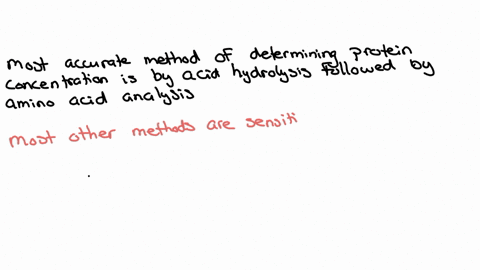 most accurate method of determining protein
concentration is by acid hydrolysis followed by
amino acid analysis
most other methods are sensiti